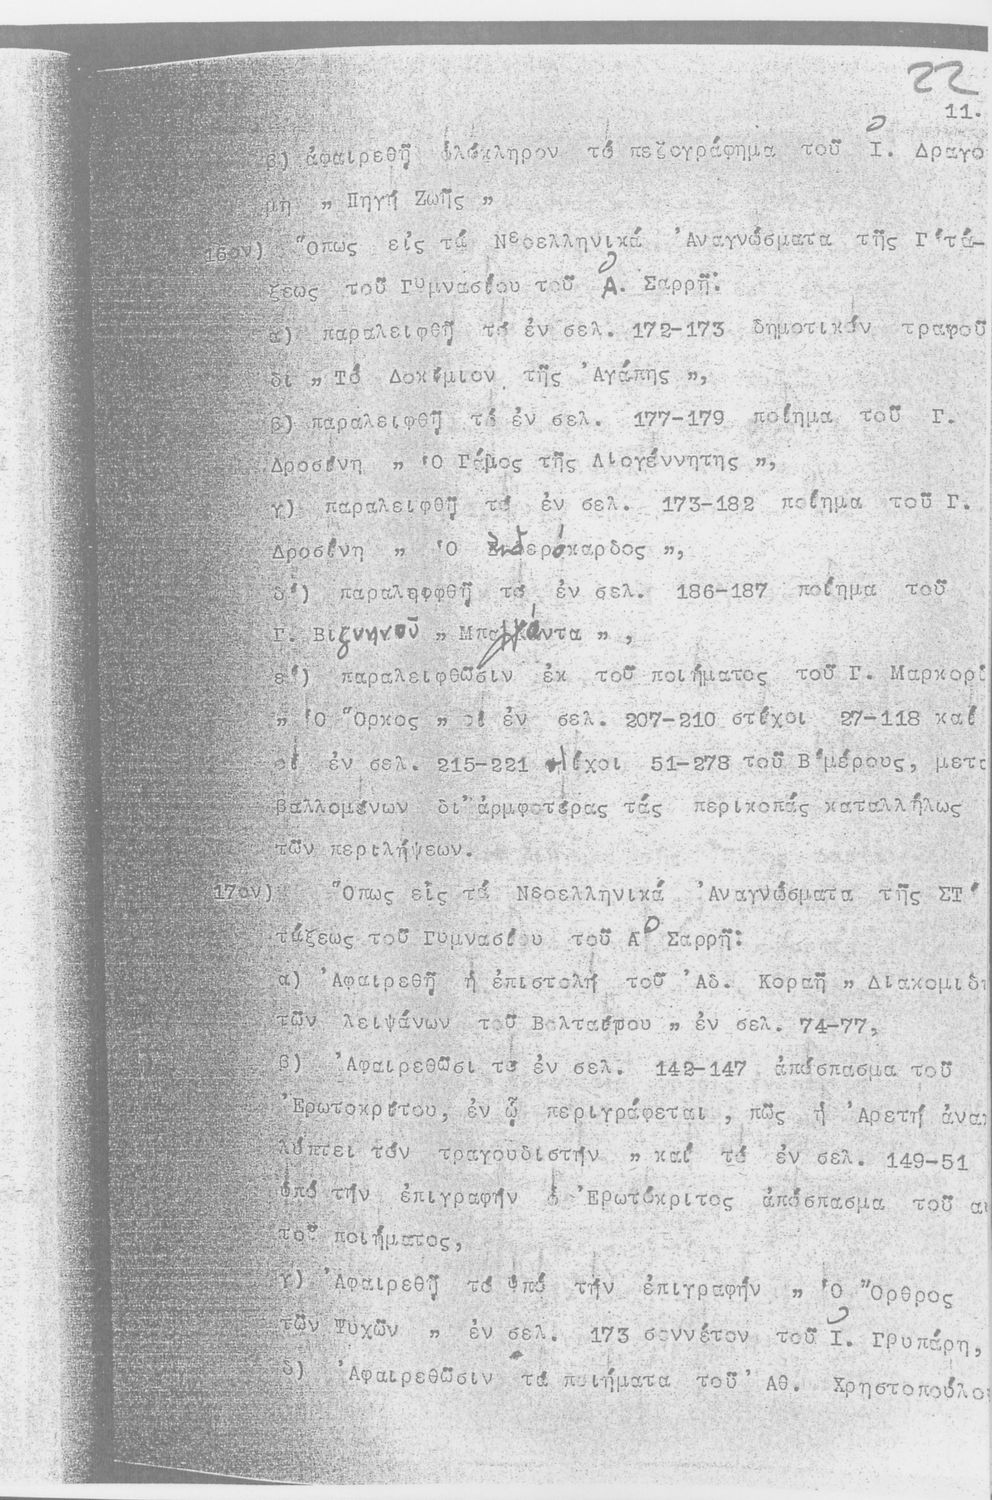 22
11.
β) ἀφαιρεθῇ ὁλόκληρον τό πεζογράφημα τοῦ Ι. Δραγο
μη „ Πηγή Ζωῆς „
16ον) Ὅπως εἰς τά Νεοελληνικά Ἀναγνώσματα τῆς Γ΄τά-
ξεως τοῦ Γυμνασίου τοῦ Α. Σαρρῆ:
α) παραλειφθῇ τό ἐν σελ. 172-173 δημοτικόν τραγοῦ
δι „ Τό Δοκίμιον τῆς Ἀγάπης „,
β) παραλειφθῇ τό ἐν σελ. 177-179 ποίημα τοῦ Γ.
Δροσίνη „ Ὁ Γάμος τῆς Λιογέννητης „,
γ) παραλειφθῇ τό ἐν σελ. 173-182 ποίημα τοῦ Γ.
Δροσίνη „ Ὁ Σιδερόκαρδος „,
δ΄) παραληφφθῇ τό ἐν σελ. 186-187 ποίημα τοῦ
Γ. Βιζυηνοῦ „ „ ,
ε΄) παραλειφθῶσιν ἐκ τοῦ ποιήματος τοῦ Γ. Μαρκορᾶ
„ Ὁ Ὅρκος „ οἱ ἐν σελ. 207-210 στίχοι 27-118 καί
οἱ ἐν σελ. 215-221 στίχοι 51-278 τοῦ Β΄μέρους, μετα
βαλλομένων δι᾽ἀρμφοτέρας τάς περικοπάς καταλλήλως
τῶν περιλήψεων.
17ον) Ὅπως εἰς τά Νεοελληνικά Ἀναγνώσματα τῆς ΣΤ΄
τάξεως τοῦ Γυμνασίου τοῦ Α Σαρρῆ:
α) Ἀφαιρεθῇ ἡ ἐπιστολή τοῦ Ἀδ. Κοραῆ „ Διακομιδή
τῶν λειψάνων τοῦ Βολταίρου „ ἐν σελ. 74-77,
β) Ἀφαιρεθῶσι τό ἐν σελ. 142-147 ἀπόσπασμα τοῦ
Ἐρωτοκρίτου, ἐν ᾧ περιγράφεται , πῶς ἡ Ἀρετή ἀνακ
λύπτει τόν τραγουδιστήν „ καί τό ἐν σελ. 149-51
ὑπό τήν ἐπιγραφήν ὁ Ἐρωτόκριτος ἀπόσπασμα τοῦ αὐ
τοῦ ποιήματος,
γ) Ἀφαιρεθῇ τό ὑπό τήν ἐπιγραφήν „ Ὁ Ὄρθρος
τῶν Ψυχῶν „ ἐν σελ. 173 σοννέτον τοῦ Ι. Γρυπάρη,
δ) Ἀφαιρεθῶσιν τά ποιήματα τοῦ Ἀθ. Χρηστοπούλου